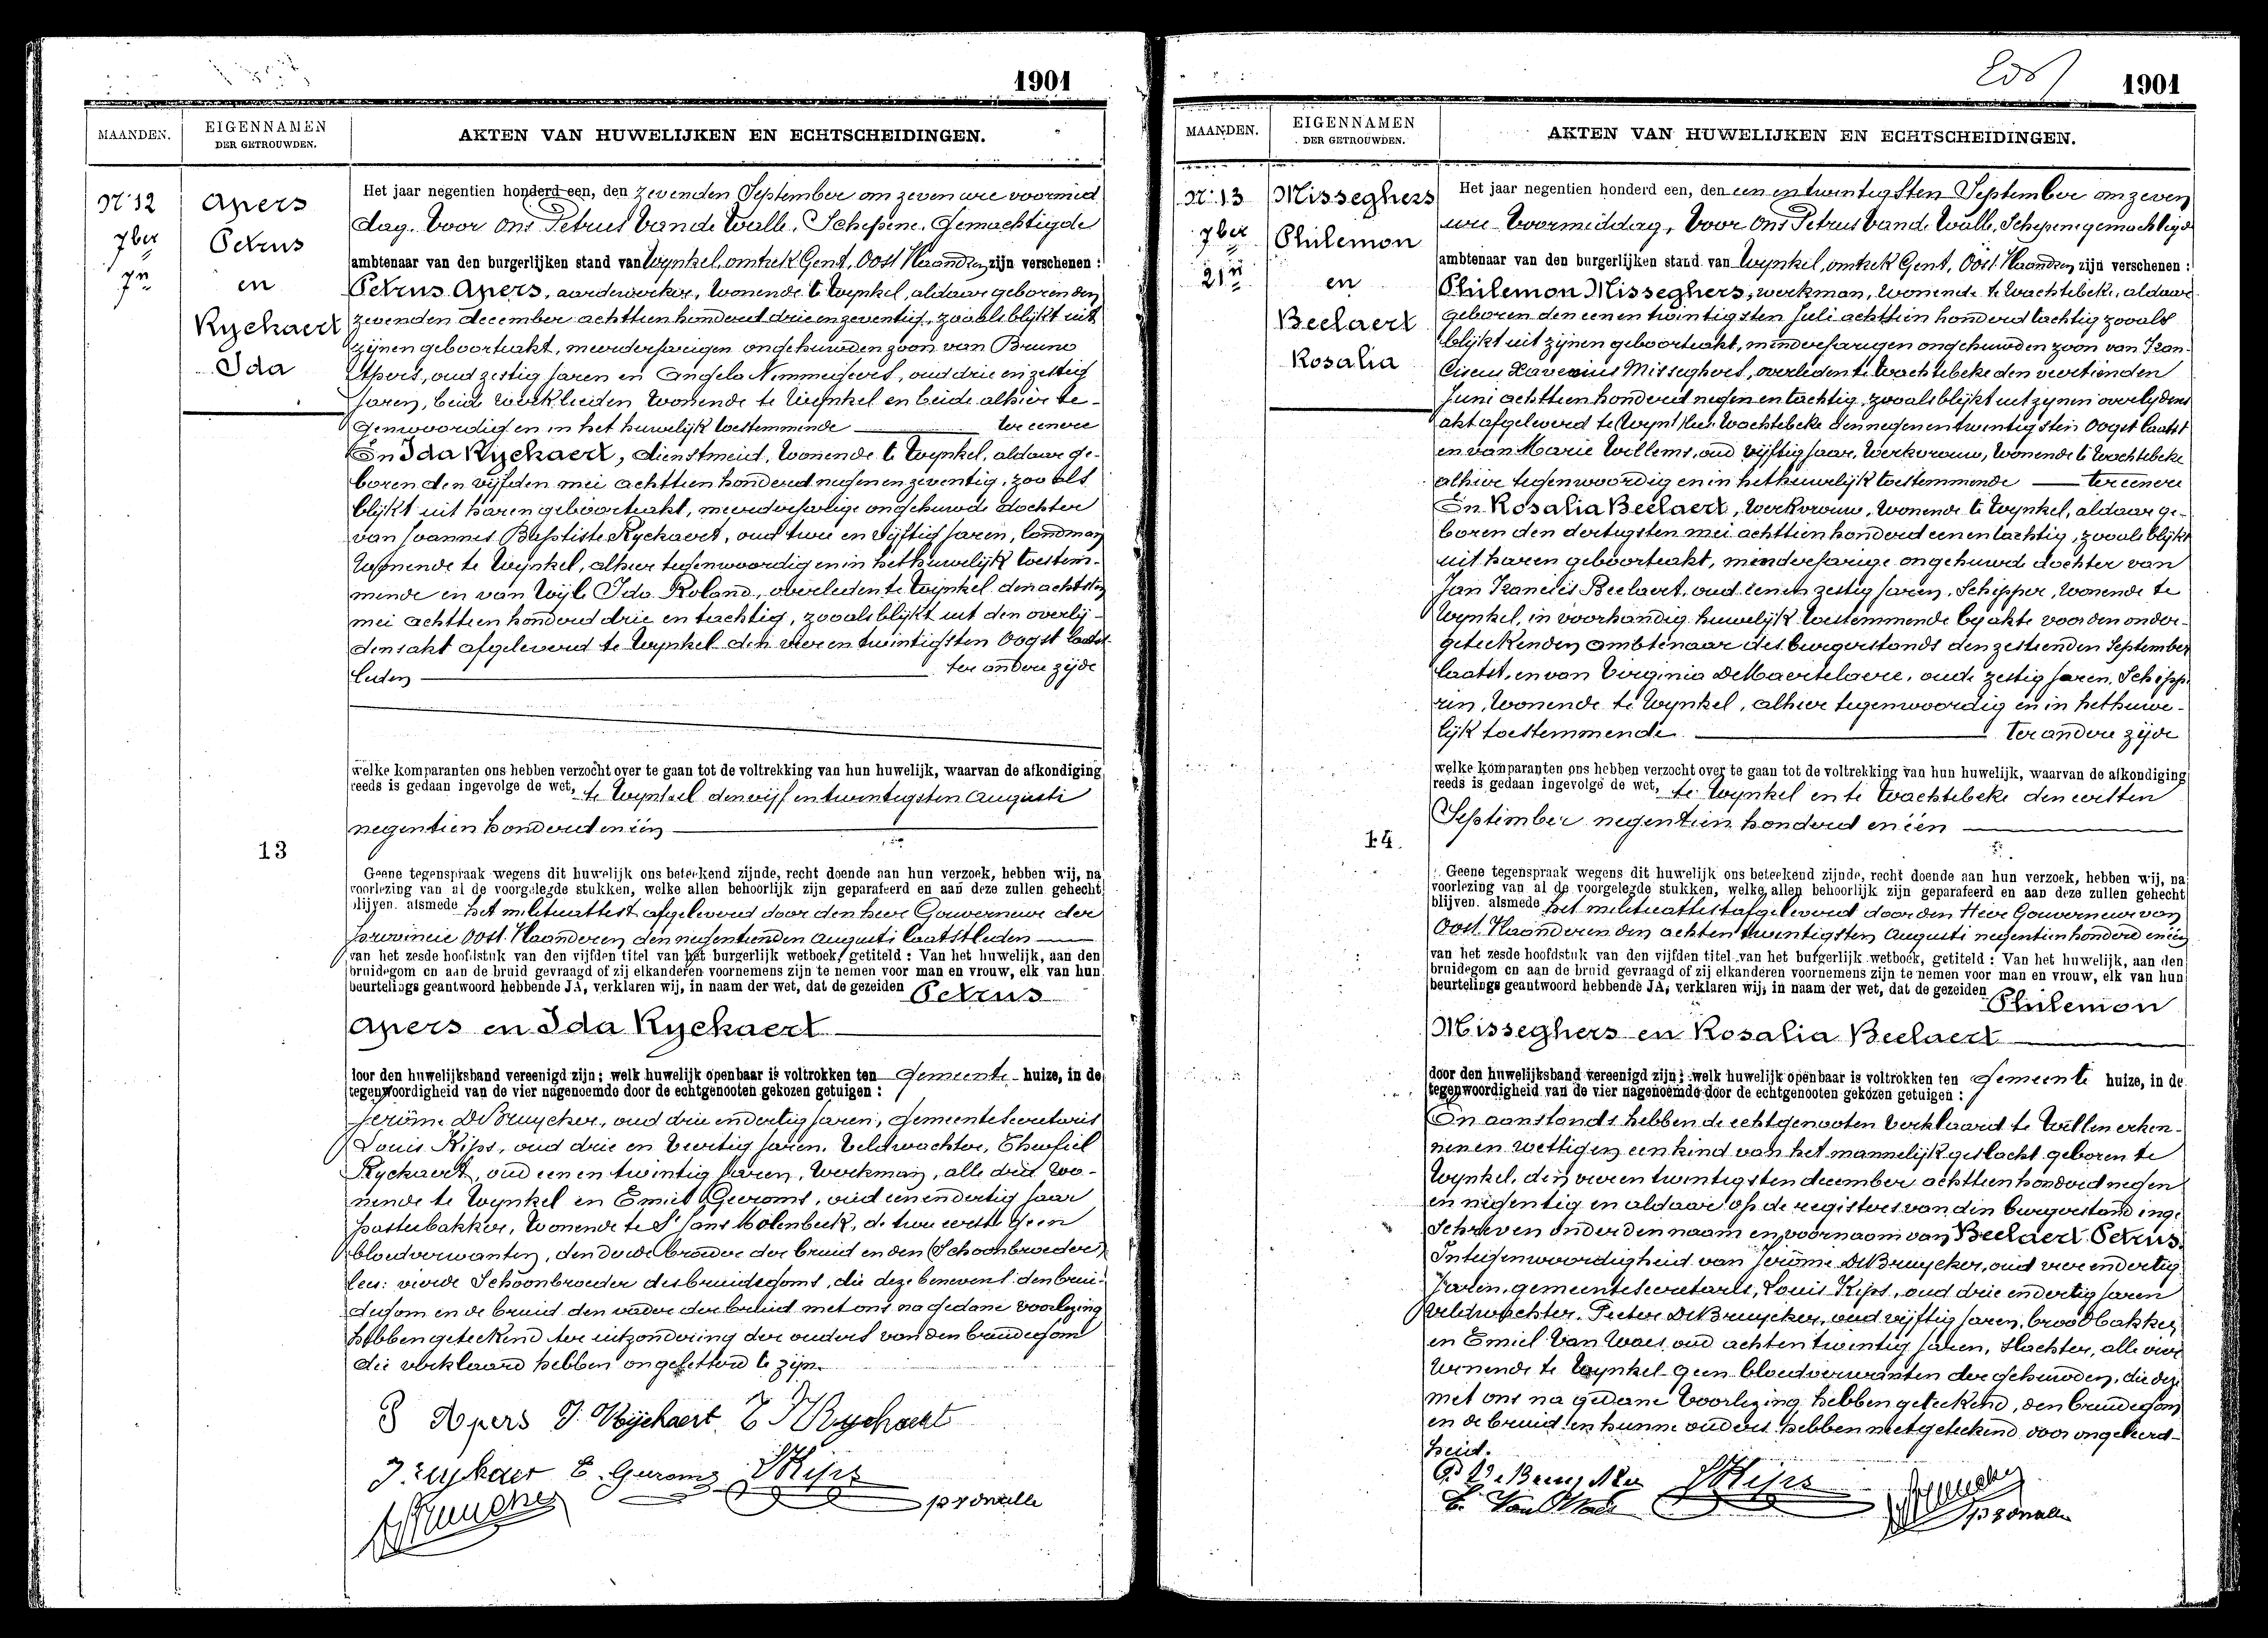 1901
MAANDEN.
EIGENNAMEN
DER GETROUWDEN.
AKTEN VAN HUWELIJKEN EN ECHTSCHEIDINGEN.
No 12
7ber
7n
Apers
Petrus
en
Rychaert
Ida
13
Het jaar negentien honderd een, den zevenden September om zeven ure voormid
dag. Voor Ons Petrus Vande Walle, Schepene. Gemachtigde
ambtenaar van den burgerlijken stand van Wynkel, omtrek Gent, Oost Vlaandren zijn verschenen :
Petrus Apers, aardewerker, Wonende te Wynkel, aldaar geboren den
zevenden december achttien honderd drie en zeventig, zooals blijkt uit
zijnen geboorteakt, meerderjarigen ongehuwden zoon van Bruno
Apers, oud zestig jaren en Angela Nimmegeers, oud drie en zestig
jaren, beide werklieden Wonende te Wynkel en beide alhier te-
genwoordig en in het huwelijk toestemmende ter eenere
En Ida Rychaert, dienstmeid, Wonende te Wynkel, aldaar ge-
boren den vijfden mei achttien honderd negen en zeventig, zoo als
blijkt uit haren geboorteakt, meerderjarige ongehuwde dochter
van Joannes Baptiste Rychaert, oud twee en vijftig jaren, landman
Wonende te Wynkel, alhier tegenwoordig en in het huwelijk toestem-
mende en van Wyle Ida Roland, overleden te Wynkel den achtsten
mei achttien honderd drie en tachtig, zooals blijkt uit den overlij-
dens akt afgeleverd te Wynkel den vier en twintigsten Oogst laatst
leden ter andere zijde
welke komparanten ons hebben verzocht over te gaan tot de voltrekking van hun huwelijk, waarvan de afkondiging
reeds is gedaan ingevolge de wet, te Wynkel den vijf en twintigsten Augusti
negentien honderd en één
Geene tegenspraak wegens dit huwelijk ons beteekend zijnde, recht doende aan hun verzoek, hebben wij, na
voorlezing van al de voorgelegde stukken, welke allen behoorlijk zijn geparafeerd en aan deze zullen gehecht
blijven. alsmede het militieattest afgeleverd door den heer Gouverneur der
provincie Oost Vlaanderen den negentienden Augusti laatstleden
van het zesde hoofdstuk van den vijfden titel van het burgerlijk wetboek, getiteld : Van het huwelijk, aan den
bruidegom en aan de bruid gevraagd of zij elkanderen voornemens zijn te nemen voor man en vrouw, elk van hun
beurtelings geantwoord hebbende JA, verklaren wij, in naam der wet, dat de gezeiden Petrus
Apers en Ida Rychaert
door den huwelijksband vereenigd zijn; welk huwelijk openbaar is voltrokken ten Gemeente huize, in de
tegenwoordigheid van de vier nagenoemde door de echtgenooten gekozen getuigen :
Jerôme De Bruycker, oud drie en dertig jaren, Gemeente Secretaris
Louis Kips, oud drie en Veertig jaren, Veldwachter, Theofiel
Rychaert, oud een en twintig jaren, Werkman, alle drie wo-
nende te Wynkel en Emiel Geeroms, oud een en dertig jaar
pasteibakker, Wonende te St Jans Molenbeek, de twee eerste geen
bloedverwanten, den derde broeder der bruid en den (Schoonbroeder)
lees: vierde Schoonbroeder des bruidegoms, die deze benevens den brui-
degom en de bruid den vader der bruid met ons na gedane voorlezing
hebben geteekend ter uitzondering der ouders van den bruidegom
die verklaard hebben ongeletterd te zijn.
P Apers I. Rijchaert T Rychaert
E. Geeroms LKips
1901
MAANDEN.
EIGENNAMEN
DER GETROUWDEN.
AKTEN VAN HUWELIJKEN EN ECHTSCHEIDINGEN.
No 13
7ber
21n
Misseghers
Philemon
en
Beelaert
Rosalia
14.
Het jaar negentien honderd een, den een en twintigsten September om zeven
ure Voormiddag, Voor Ons Petrus Vande Walle, Schepene gemachtigd
ambtenaar van den burgerlijken stand van Wynkel, omtrek Gent, Oost Vlaandren zijn verschenen :
Philemon Misseghers, werkman, Wonende te Wachtebeke, aldaar
geboren den een en twintigsten Juli achttien honderd tachtig zooals
blijkt uit zijnen geboorteakt, minderjarigen ongehuwden zoon van Fran-
ciscus Xaverius Misseghers, overleden te Wachtebeke den veertienden
Juni achttien honderd negen en tachtig, zooals blijkt uit zijnen overlijdens
akt afgeleverd te Wachtebeke den negen en twintigsten Oogst laatst
en van Marie Willems, oud vijftig jaar, Werkvrouw, Wonende te Wachtebeke
alhier tegenwoordig en in het huwelijk toestemmende ter eenere
En Rosalia Beelaert, Werkvrouw, Wonende te Wynkel, aldaar ge-
boren den dertigsten mei achttien honderd een en tachtig, zooals blijkt
uit haren geboorteakt, minderjarige ongehuwde dochter van
Jan Francies Beelaert, oud een en zestig jaren, Schipper, Wonende te
Wynkel, in voorhandig huwelijk toestemmende by akte voor den onder-
geteekenden ambtenaar des burgerstands den zestienden September
laatst, en van Virginia De Maertelaere, oude zestig jaren, Schipp
rin, Wonende te Wynkel, alhier tegenwoordig en in het huwe-
lijk toestemmende Ter andere zijde
welke komparanten ons hebben verzocht over te gaan tot de voltrekking van hun huwelijk, waarvan de afkondiging
reeds is gedaan ingevolge de wet, te Wynkel en te Wachtebeke den eersten
September negentien honderd en één
Geene tegenspraak wegens dit huwelijk ons beteekend zijnde, recht doende aan hun verzoek, hebben wij, na
voorlezing van al de voorgelegde stukken, welke allen behoorlijk zijn geparafeerd en aan deze zullen gehecht
blijven. alsmede het militieattest afgeleverd door den Heer Gouverneur van
Oost Vlaanderen den acht en twintigsten Augusti negentien honderd en één
van het zesde hoofdstuk van den vijfden titel van het burgerlijk wetboek, getiteld : Van het huwelijk, aan den
bruidegom en aan de bruid gevraagd of zij elkanderen voornemens zijn te nemen voor man en vrouw, elk van hun
beurtelings geantwoord hebbende JA, verklaren wij, in naam der wet, dat de gezeiden Philemon
Misseghers en Rosalia Beelaert
door den huwelijksband vereenigd zijn; welk huwelijk openbaar is voltrokken ten Gemeente huize, in de
tegenwoordigheid van de vier nagenoemde door de echtgenooten gekozen getuigen :
En aanstonds hebben de echtgenooten Verklaard te Willen erken-
nen en wettigen een kind van het mannelijk geslacht geboren te
Wynkel, den vier en twintigsten december achttien honderd negen
en negentig en aldaar op de registers van den burgerstand inge
schreven onder den naam en voornaam van Beelaert Petrus.
In tegenwoordigheid van Jerôme De Bruycker, oud vier en dertig
Jaren, gemeente secretaris, Louis Kips, oud drie en dertig jaren
veldwachter, Pieter De Bruycker, oud vijftig jaren, broodbakker
en Emiel Van Waes oud acht en twintig jaren, slachter, alle vier
Wonende te Wynkel geen bloedverwanten der gehuwden, die deze
met ons na gedane Voorlezing hebben geteekend, den bruidegom
en de bruid en hunne ouders hebben niet geteekend voor ongeleerd-
heid.
LKips
E. Van Waes